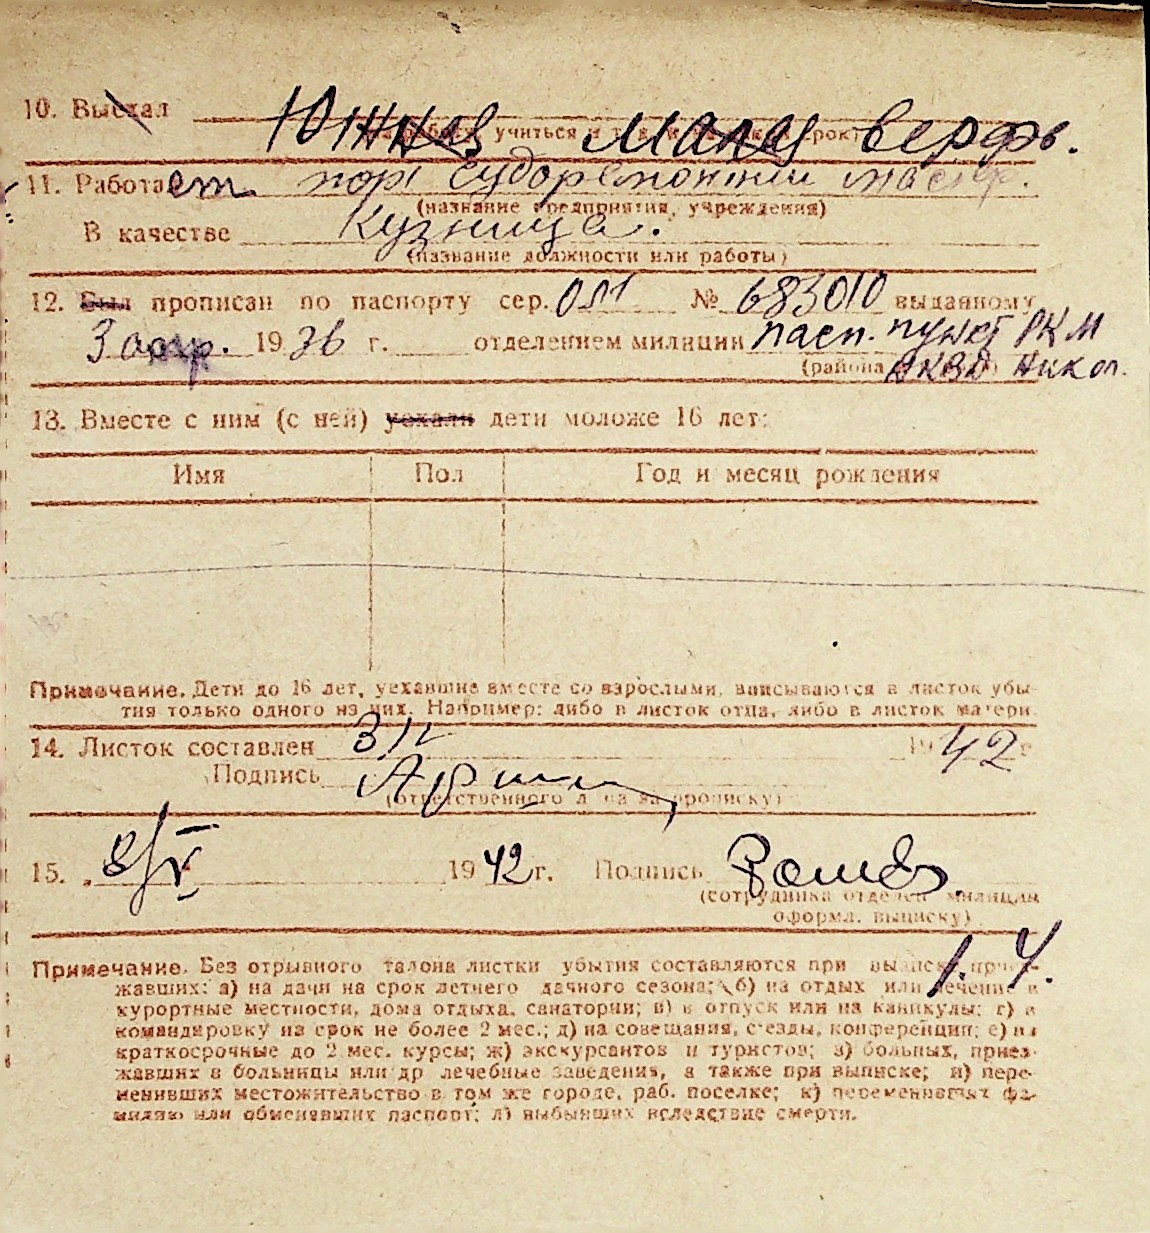 10. Выехал Южная малая верфь.
учиться и срок
11. Работает порт судоремонтны мастер.
(название предприятия, учреждения)
В качестве Кузнеца.
(название должности или работы)
12. Был прописан по паспорту сер. № 683010 выданному
3 апр. 1936 г. отделением милиции пасп. пункт РКМ
(района НКВД Никол.
13. Вместе с ним (с ней) уехали дети моложе 16 лет:
Имя Пол Год и месяц рождения
Примечание. Дети до 16 лет, уехавшие вместе со взрослыми, вписываются в листок убы-
тия только одного из них. Например: либо в листок отца, либо в листок матери.
14. Листок составлен 1942 г
Подпись
(ответственного лица за прописку)
15. 8/V 1942 г. Подпись
(сотрудника отделен. милиции
оформл. выписку)
1. 4.
Примечание. Без отрывного талона листки убытия составляются при выписке приез-
жавших: а) на дачи на срок летнего дачного сезона; б) на отдых или лечение в
курортные местности, дома отдыха, санатории; в) в отпуск или на каникулы; г) в
командировку на срок не более 2 мес.; д) на совещания, с'езды, конференции; е) на
краткосрочные до 2 мес. курсы; ж) экскурсантов и туристов; з) больных, приез-
жавших в больницы или др лечебные заведения, а также при выписке; и) пере-
менивших местожительство в том же городе, раб. поселке; к) переменивших фа-
милию или обменявших паспорт; л) выбывших вследствие смерти.